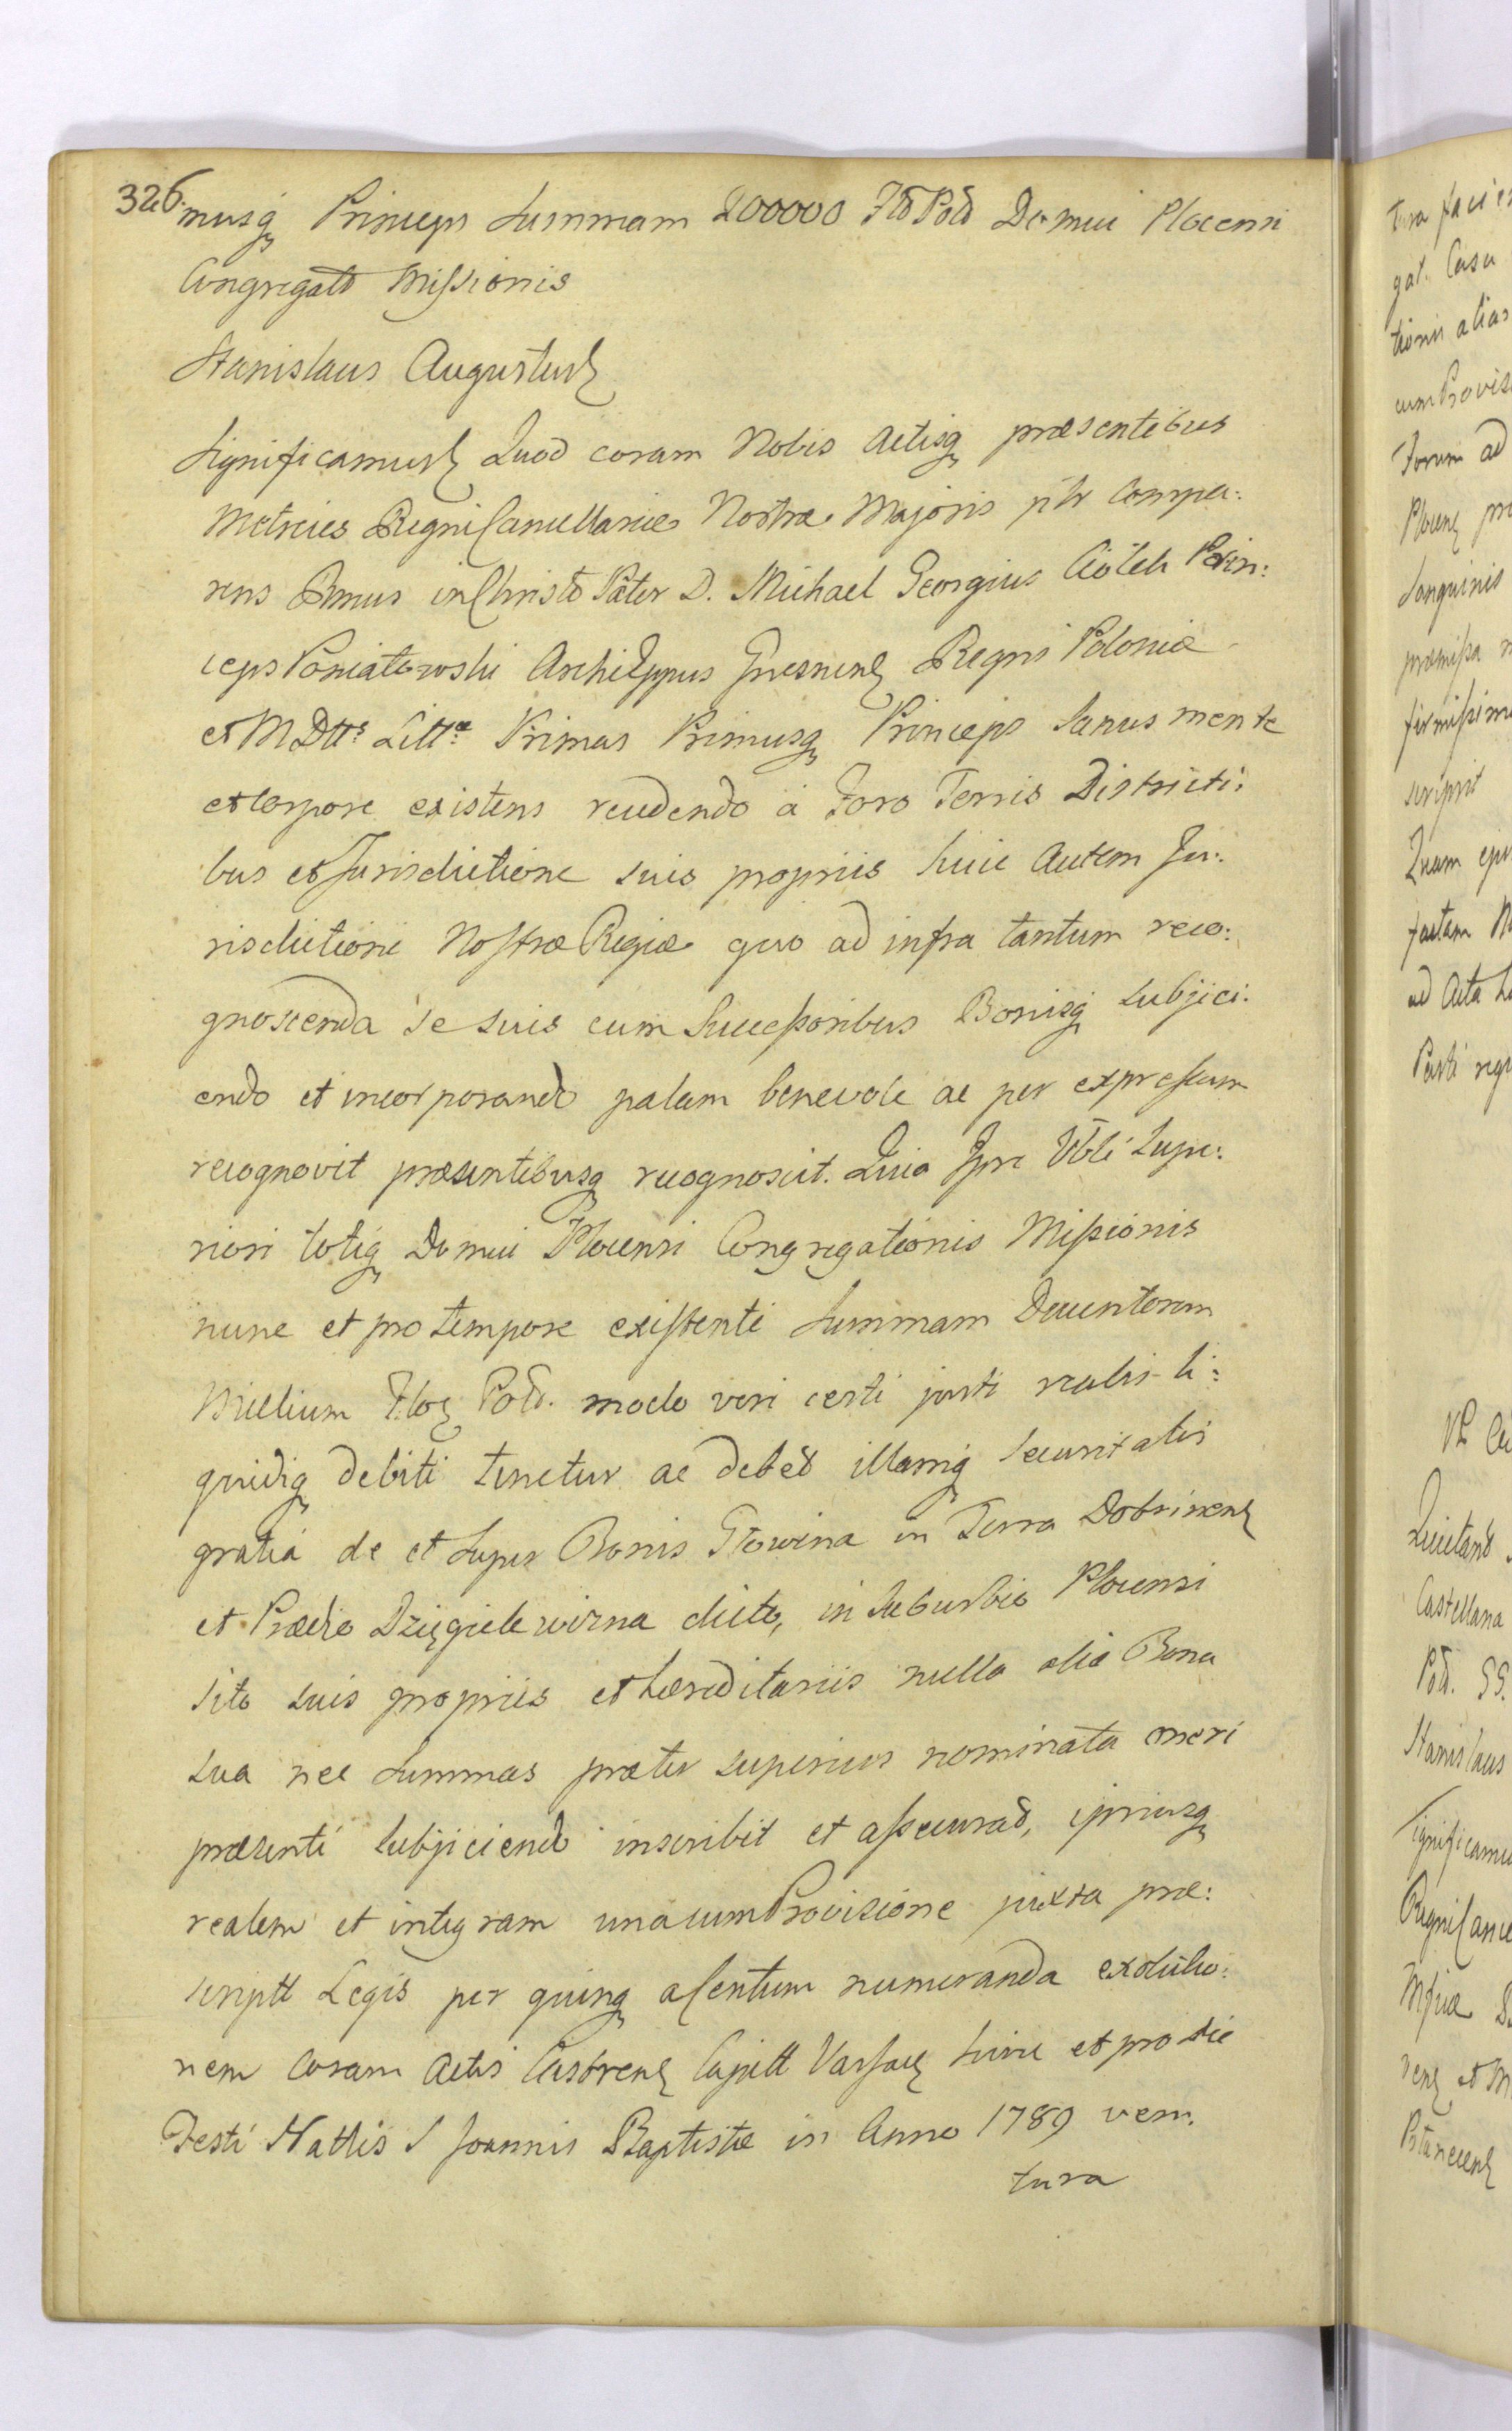 326.
musq Princeps Summam 200000 Fld Pold Domui Plocensi
Congregatt Missionis
Stanislaus Augustus
Significamus Quod coram Nobis Actisq præsentibus
Metrices Regni Cancellariæ Nostræ Majoris pltr Compa:
rens Rmus in Christo Pater D. Michael Georgius Ciołek Prin:
ceps Poniatowski ArchiEppus Gnesnens Regni Poloniæ
et M Dtts Littæ Primas Primusq Princeps Sanus mente
et Corpore existens recedendo a Foro Terris Districti:
bus et Jurisdictione suis propriis huic autem Ju:
risdictioni Nostræ Regiæ quo ad infra tantum reco:
gnoscenda se suis cum Successoribus Bonisq subjici:
endo et incorporando palam benevole ac per expressum
recognovit præsentibusq recognoscit. Quia Ipse Vbli Supe:
riori totiq Domui Plocensi Congregationis Missionis
nunc et pro tempore existenti Summam Ducentorum
Millium Flos Pold. modo veri certi justi realis li:
quidiq debiti tenetur ac debet illamq securitatis
gratia de et super Bonis Głowina in Terra Dobrinens
et Prædio Dzięgielewizna dicto, in Suburbio Plocensi
sito suis propriis et hæreditariis nulla alia Bona
sua nec Summas præter superius nominata oneri
præsenti subjiciendo inscribit et assecurat, ipsiusq
realem et integram una cum Provisione juxta præ:
scriptt Legis per quinq a Centum numeranda exolutio:
nem Coram Actis Castrens Capitt Varsav hicce et pro die
Festi Nattis S Joannis Baptistæ in Anno 1789 ven:
tura
tura
gat. Casu
tionis alias
cum Provis
Forum ad
Plocens
Sanguinis
præmissa
firmissim
scripsit
Quam
factam
ad Acta
Parti
Quietatt
Castellana
Pold.
Stanislaus
Significamus
Regni Canc